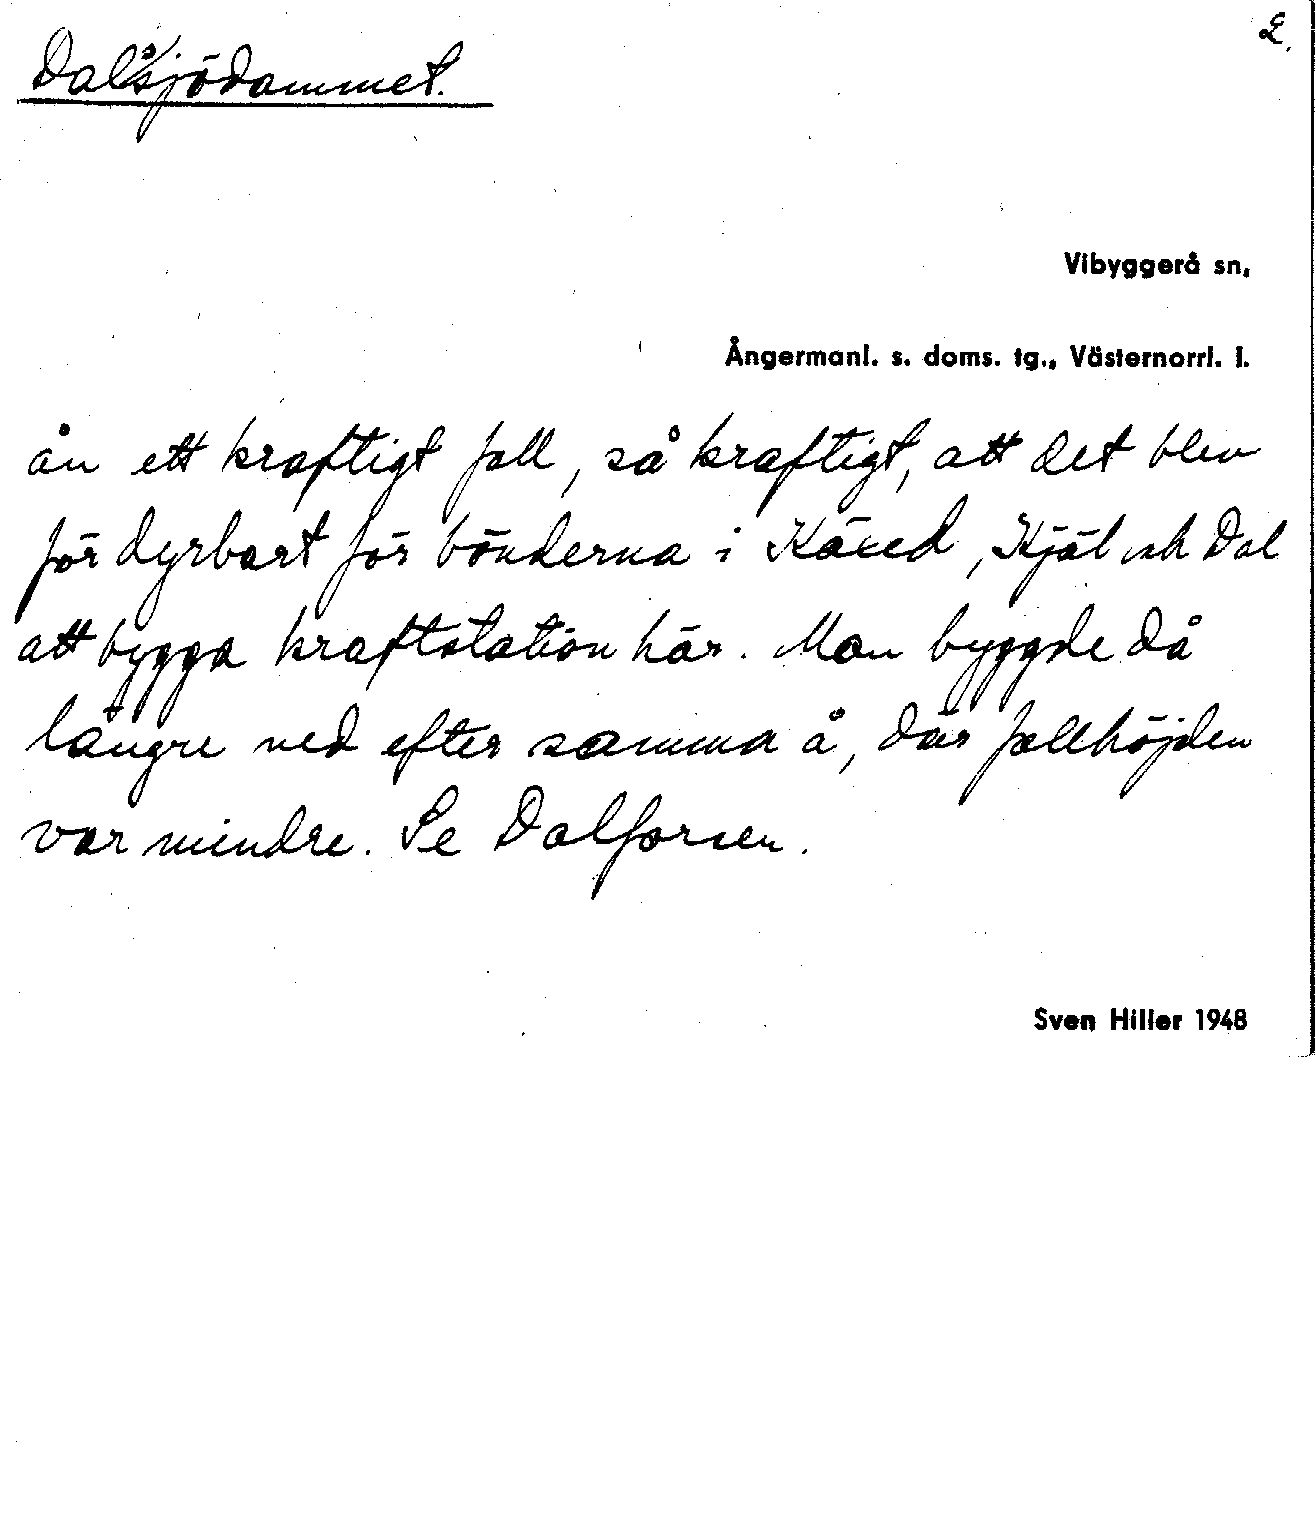 2.
Dalsjödammet.
Vibyggerå sn,
Ångermanl. s. doms. tg., Västernorrl. l.
ån ett kraftigt fall, så kraftigt, att det blev
för dyrbart för bönderna i Käxed, Kjäl och Dal
att bygga kraftstation här. Man byggde då
längre ned efter samma å, där fallhöjden
var mindre. Se Dalforsen.
Sven Hiller 1948